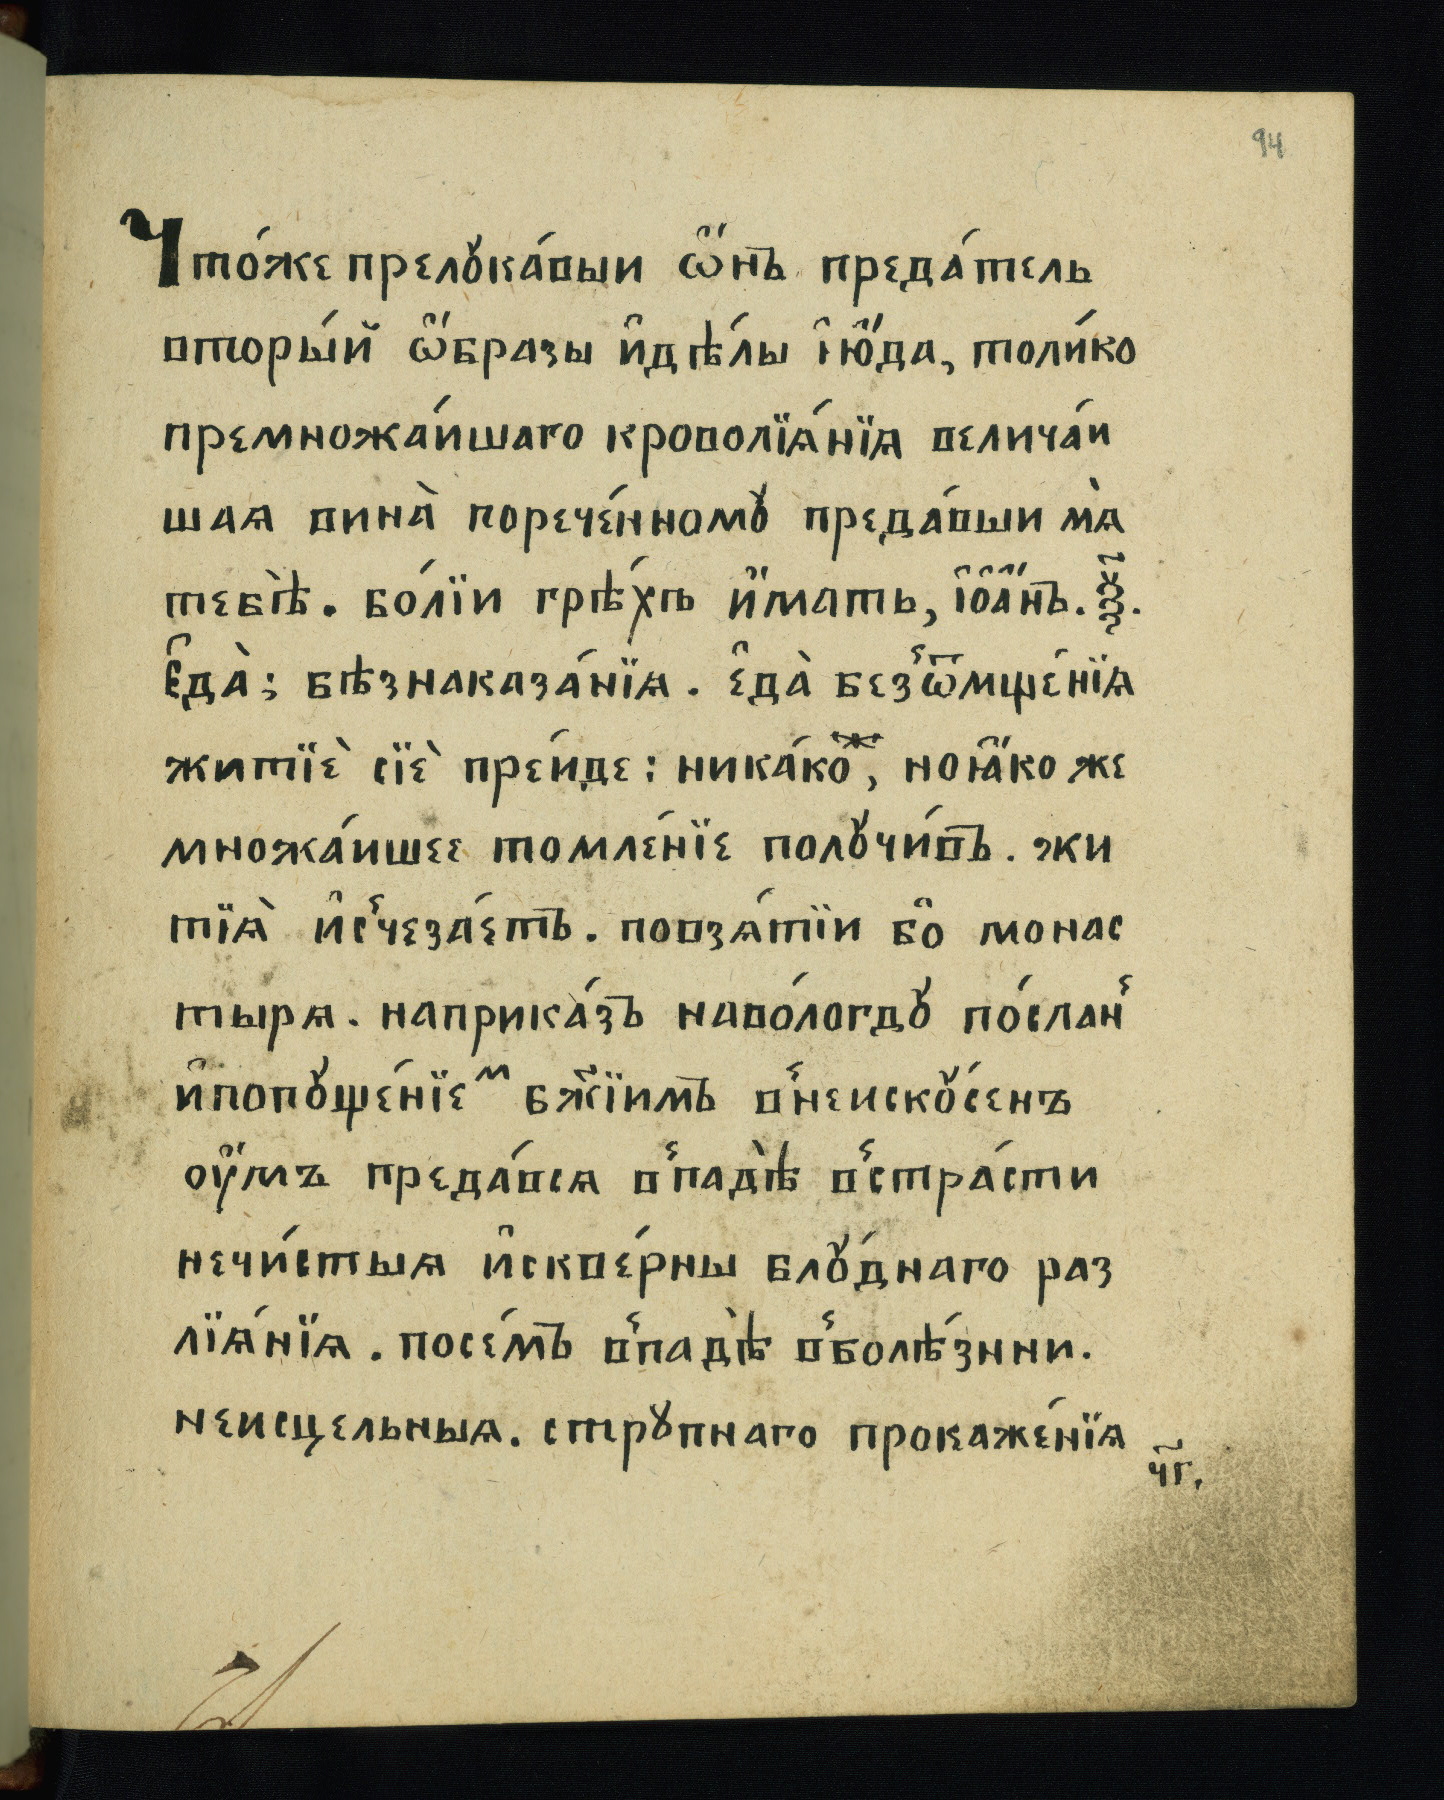 94
Что́же прелꙋка́выи ѡ҆́нъ преда́тель
вторы́й ѡ҆́бразы и҆дѣ́лы і҆ю҆́да, толи́ко
премножа́ишаго кроволїѧ́нїѧ велича́и
шаѧ вина̀ порече́нномꙋ преда́вши мѧ̀
тебѣ̀. бо́лїи грѣ́хъ и҆́мать, і҆о҆а҆́нъ. ѯ҃з.
Е҆да̀; бѣзнаказа́нїѧ. е҆да̀ безѿмще́нїѧ
житїѐ сїѐ пре́иде: ника́коⷤ, ноꙗ҆́ко же
множа́ишее томле́нїе полꙋчи́въ. жи
тїѧ̀ и҆счеза́етъ. повзѧ́тїи бо҆ монас
тырѧ. наприка́зъ наво́логдꙋ по́слан
и҆попꙋще́нїеⷨ бж҃їимъ внеискꙋ́сенъ
ѹ҆́мъ преда́всѧ впадѣ̀ встра́сти
нечи́стыѧ и҆скве́рны блꙋ́днаго раз
лїѧ́нїѧ. посе́мъ впадѣ̀ вболѣ́знни.
неисцельныѧ. стрꙋпнаго прокаже́нїѧ
ч҃г.